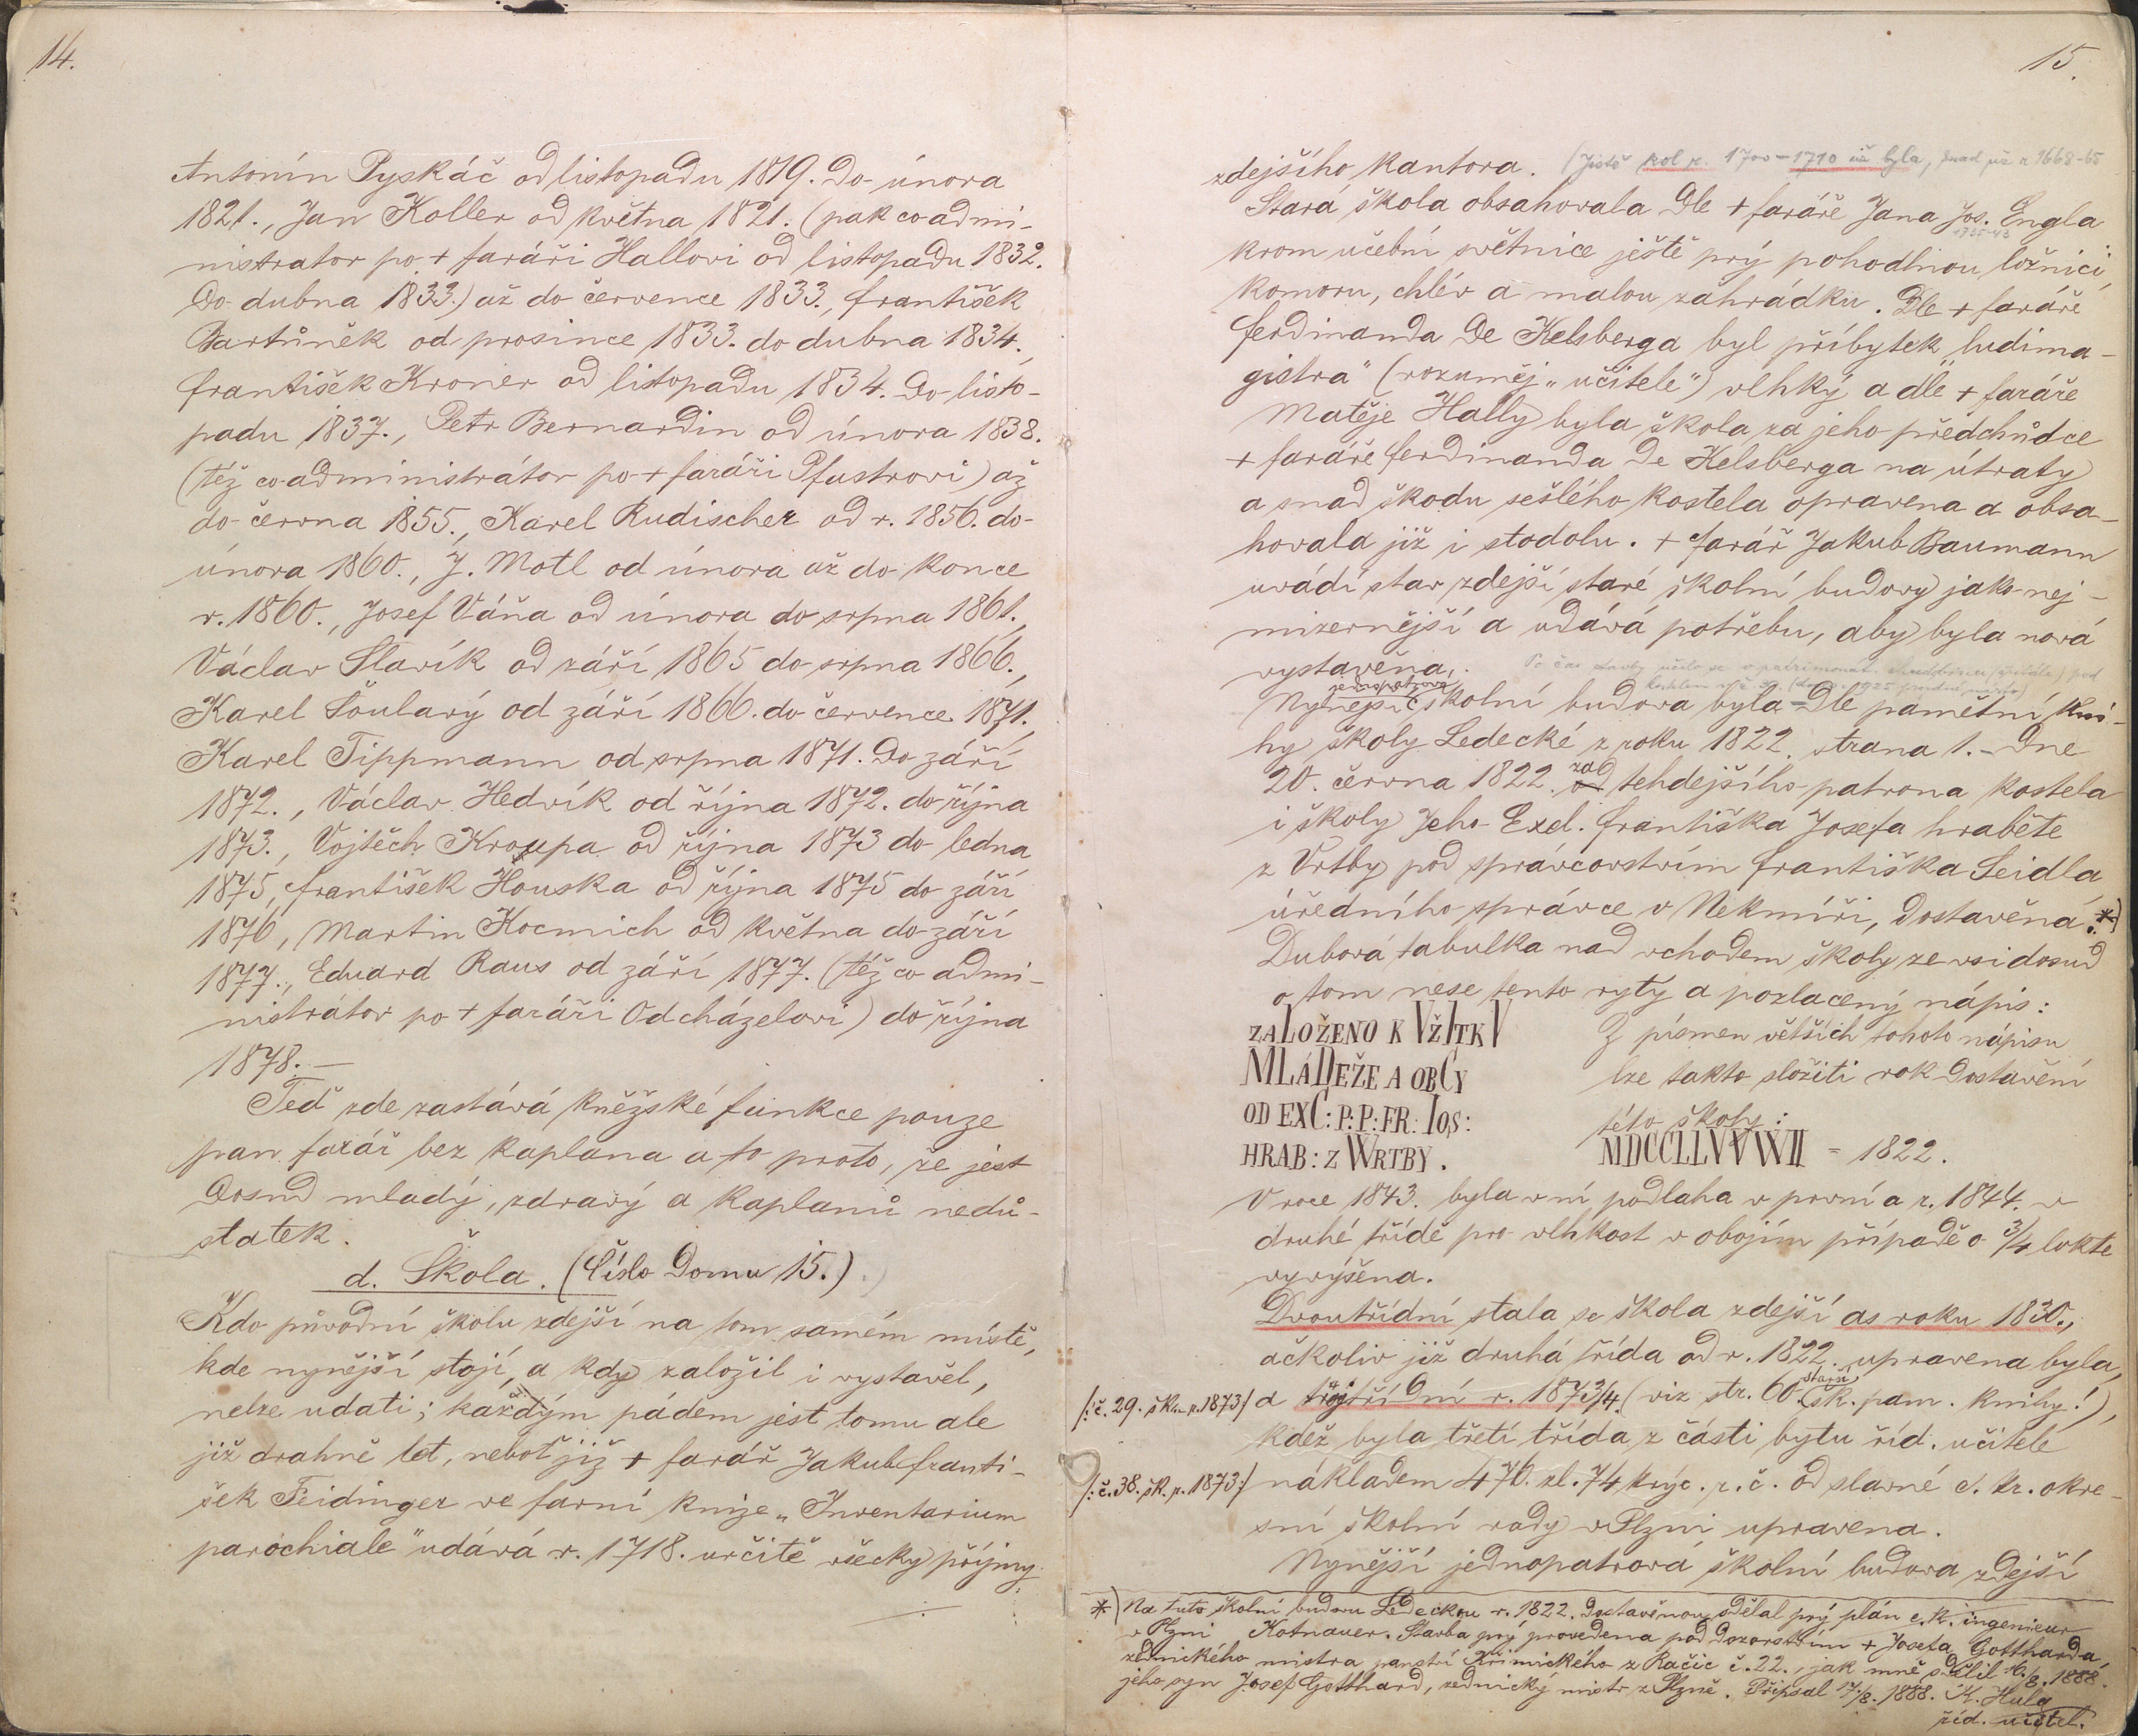 14.
Antonín Pyskáč od listopadu 1819. do února
1821., Jan Koller od května 1821. (pak co admi-
nistrator po + faráři Hallovi od listopadu 1832.
do dubna 1833.) až do července 1833., František
Bartůněk od prosince 1833. do dubna 1834.,
František Kroner od listopadu 1834. do listo-
padu 1837., Petr Bernardin od února 1838.
(též co administrátor po + faráři Pfustrovi) až
do června 1855., Karel Rudischer od r. 1856. do
února 1860., J. Motl od února až do konce
r. 1860., Josef Váňa od února do srpna 1861.,
Václav Slavík od září 1865 do srpna 1866.,
Karel Šoulavý od září 1866. do července 1871.,
Karel Tippmann od srpna 1871. do září
1872., Václav Hedvík od října 1872. do října
1873., Vojtěch Kroupa od října 1873 do ledna
1875, František Houska od října 1875 do září
1876, Martin Kocmich od května do září
1877., Eduard Raus od září 1877. (též co admi-
nistrátor po + faráři Odcházelovi) do října
1878. —
Teď zde zastává kněžské funkce pouze
pan farář bez kaplana a to proto, že jest
dosud mladý, zdravý a kaplanů nedů-
statek.
d. Škola. (Číslo domu 15.)
Kdo původní školu zdejší na tom samém místě,
kde nynější stojí, a kdy založil i vystavěl,
nelze udati; každým pádem jest tomu ale
již drahně let, neboť již + farář Jakub Franti-
šek Feidinger ve farní knize „Inventarium
parochiale" udává r. 1718. určitě všecky příjmy
15.
zdejšího kantora. (Jistě kol r. 1700–1710 již byla, snad již r 1668-65
Stará škola obsahovala dle + faráře Jana Jos. Engla
1735-43
krom učební světnice ještě prý pohodlnou ložnici,
komoru, chlév a malou zahrádku. Dle + faráře
Ferdinanda de Kelsberga byl příbytek „ludima-
gistra" (rozuměj „učitele") vlhký a dle + faráře
Matěje Hally byla škola za jeho předchůdce
+ faráře Ferdinanda de Kelsberga na útraty
a snad škodu sešlého kostela opravena a obsa-
hovala již i stodolu. + farář Jakub Baumann
uvádí stav zdejší staré školní budovy jako nej-
mizernější a udává potřebu, aby byla nová
vystavěna. Po čas stavby učilo se v patrimonát. pod
kostelem v č. 30.
jednopatrová
Nynější školní budova byla – dle pamětní kni-
hy školy Ledecké z roku 1822. strana 1. – dne
20. června 1822. za tehdejšího patrona kostela
i školy Jeho Excl. Františka Josefa hraběte
z Vrtby pod správcovstvím Františka Seidla,
úředního správce v Nekmíři, dostavěna. *)
Dubová tabulka nad vchodem školy ze vsi dosud
o tom nese tento rytý a pozlacený nápis:
ZALOŽENO K VŽITKV
MLÁDEŽE A OBCY
OD EXC: P: P: FR: IOS:
HRAB: Z WRTBY.
Z písmen větších tohoto nápisu
lze takto složiti rok dostavění
této školy:
MDCCLLVVVVII = 1822.
V roce 1843. byla v ní podlaha v první a r. 1844. v
druhé třídě pro vlhkost v obojím případě o 3/4 lokte
vyvýšena.
Dvoutřídní stala se škola zdejší as roku 1830.,
ačkoliv již druhá třída od r. 1822. upravena byla,
/:č. 29. šk. r. 1873:/ a trojtřídní r. 1873/4. (viz str. 60. starší šk. pam. knihy!),
kdež byla třetí třída z části bytu říd. učitele
/:č. 38. šk. r. 1873:/ nákladem 476 zl. 74 krýc. r. č. od slavné c. kr. okre-
sní školní rady v Plzni upravena.
Nynější jednopatrová školní budova zdejší
*) Na tuto školní budovu Ledeckou r. 1822. dostavěnou, sdělal prý plán c. k. ingenieur
v Plzni Kotnauer. Stavba prý provedena pod dozorstvím + Josefa Gottharda,
zednického mistra panství Křimického z Račic č. 22., jak mně sdělil 16./8. 1888.
jeho syn Josef Gotthard, zednický mistr z Plzně. Připsal 17./8. 1888. K. Hula
říd. učitel.